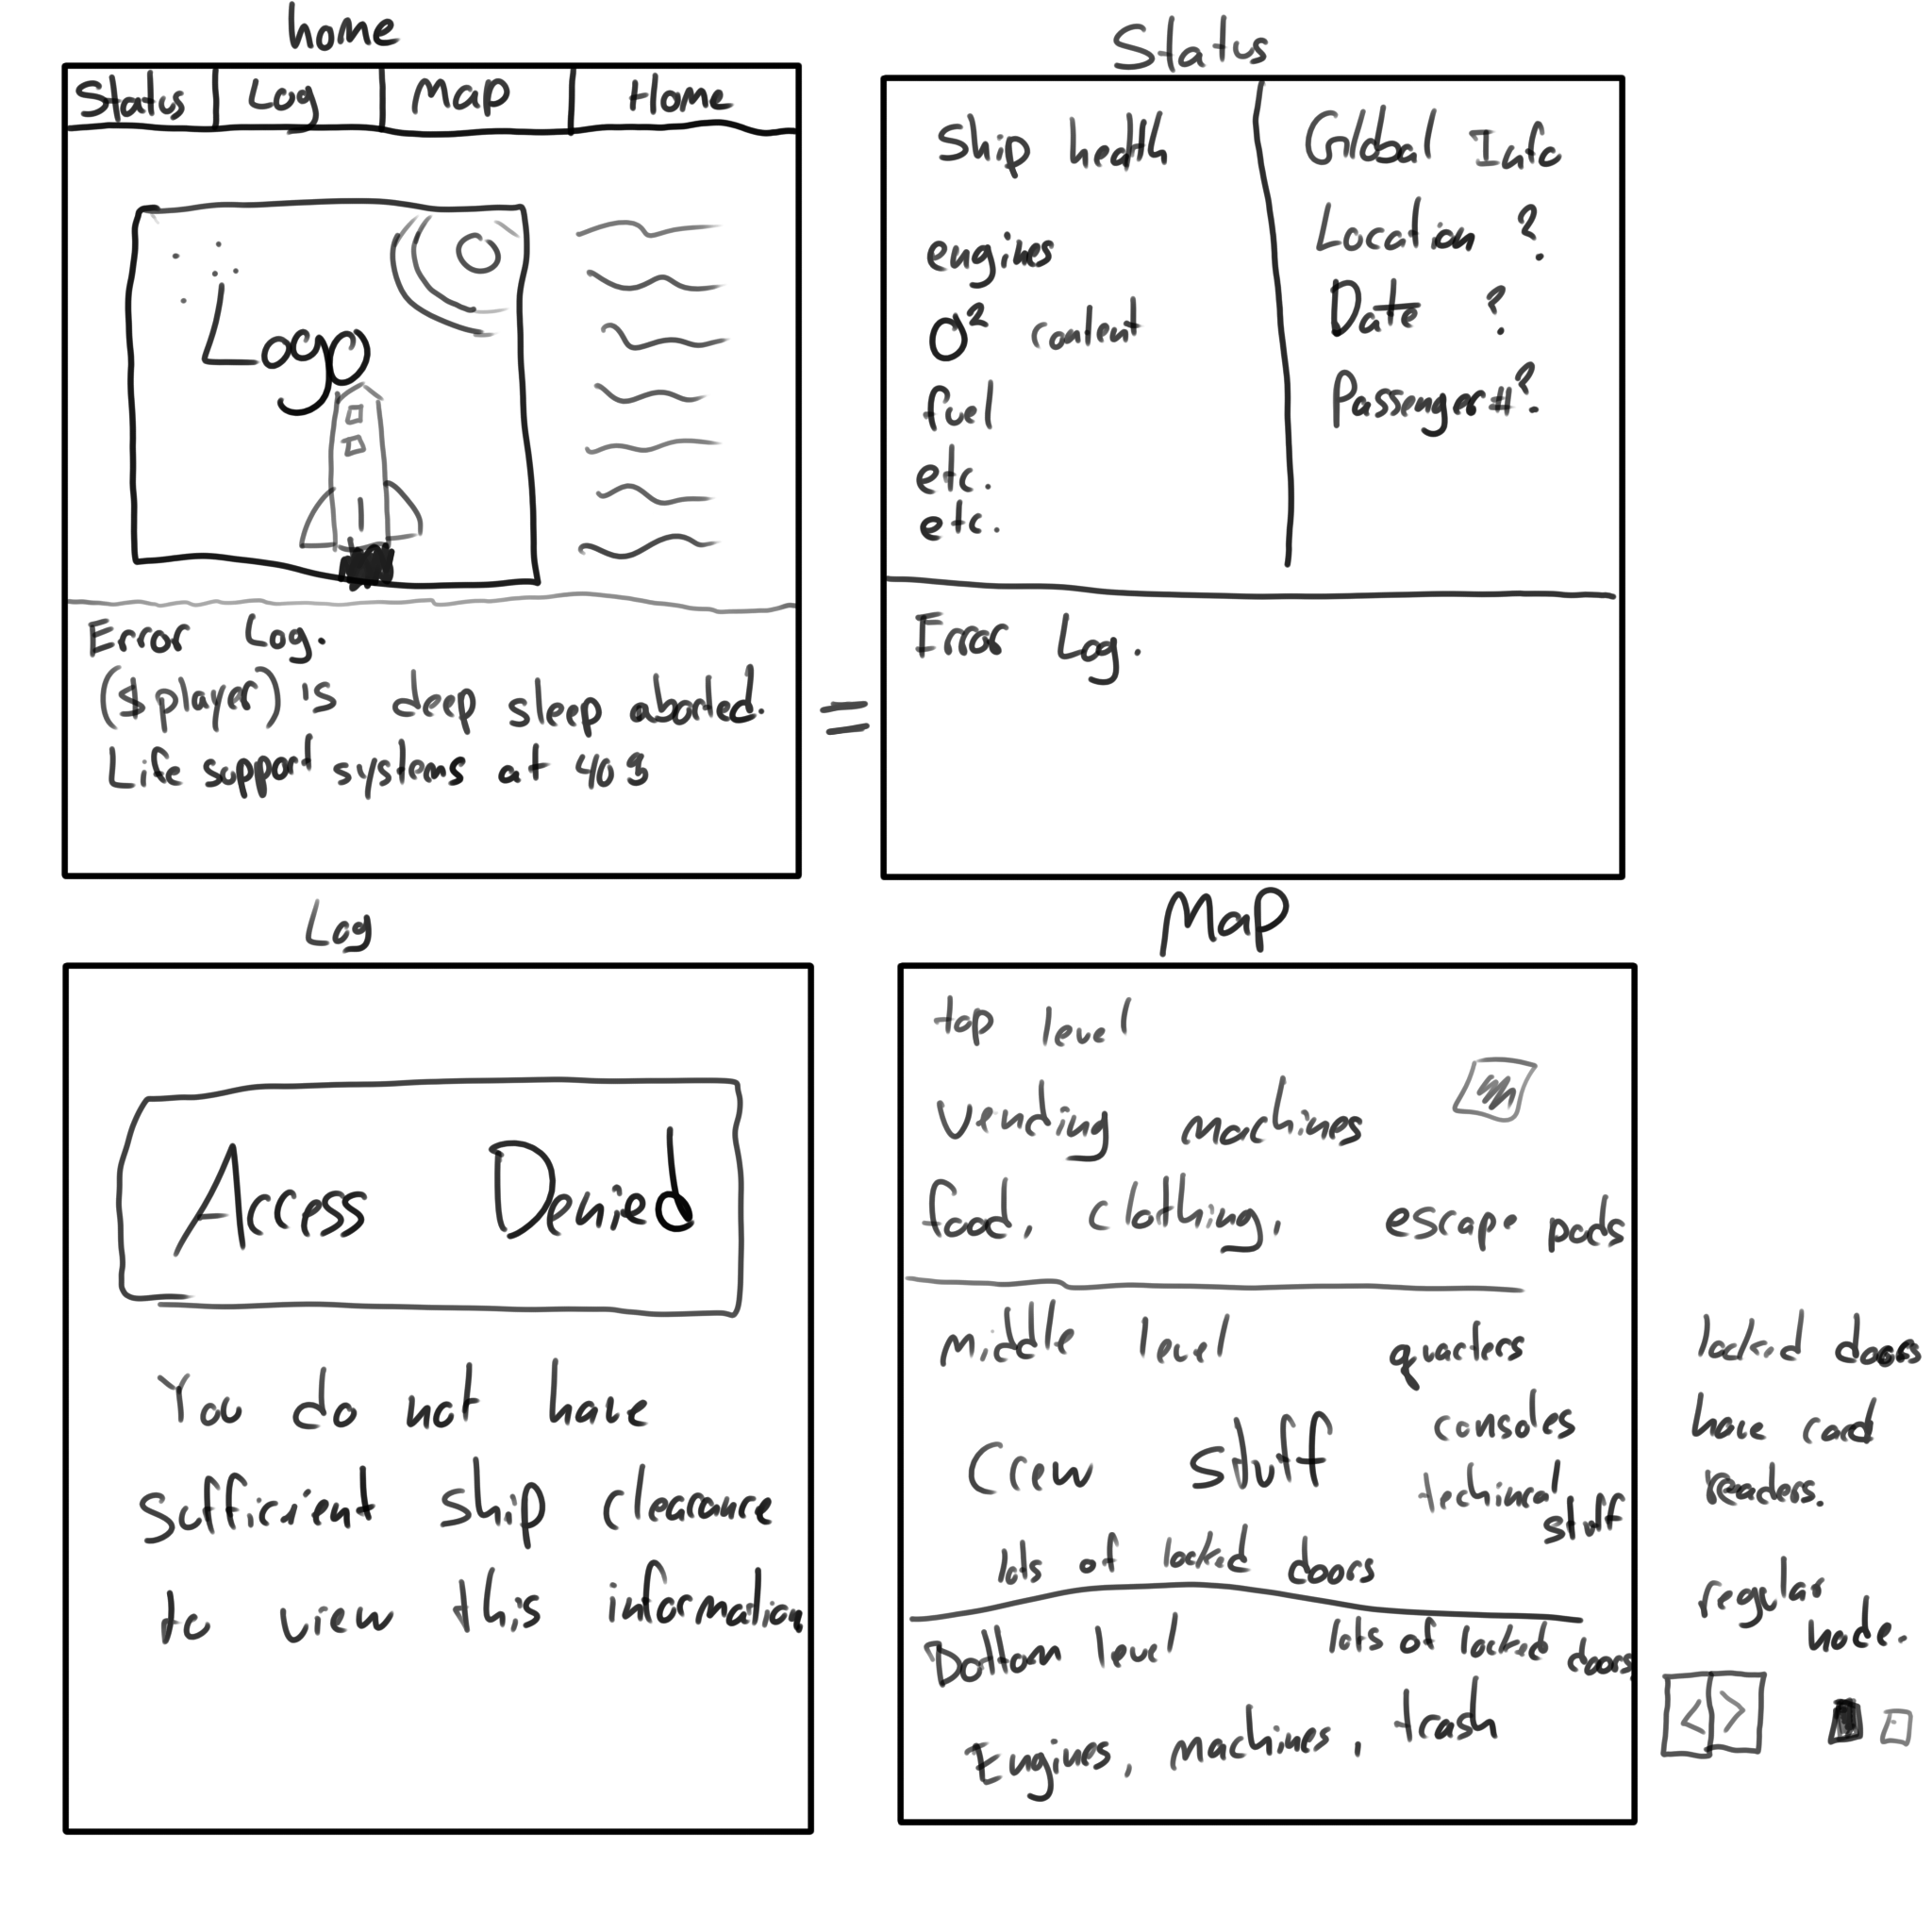 home
Status Log Map Home
Logo
Error Log.
($player) is deep sleep aborted.
Life support systems at 40%
=
Status
Ship health
engines
O² content
fuel
etc.
etc.
Global Info
Location ?
Date ?
Passenger #?
Error Log.
Log
Access Denied
You do not have
sufficient ship clearance
to view this information
Map
top level
vending machines
food, clothing, escape pods
middle level quarters
consoles
Crew stuff
techincal
stuff
lots of locked doors
Bottom level lots of locked doors
Engines, machines, trash
locked doors
have card
readers.
regular
node.
< >